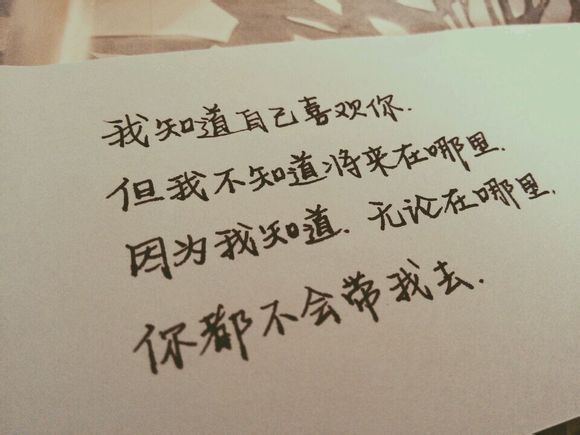 我知道自己喜欢你.
但我不知道将来在哪里.
因为我知道.无论在哪里.
你都不会带我去.